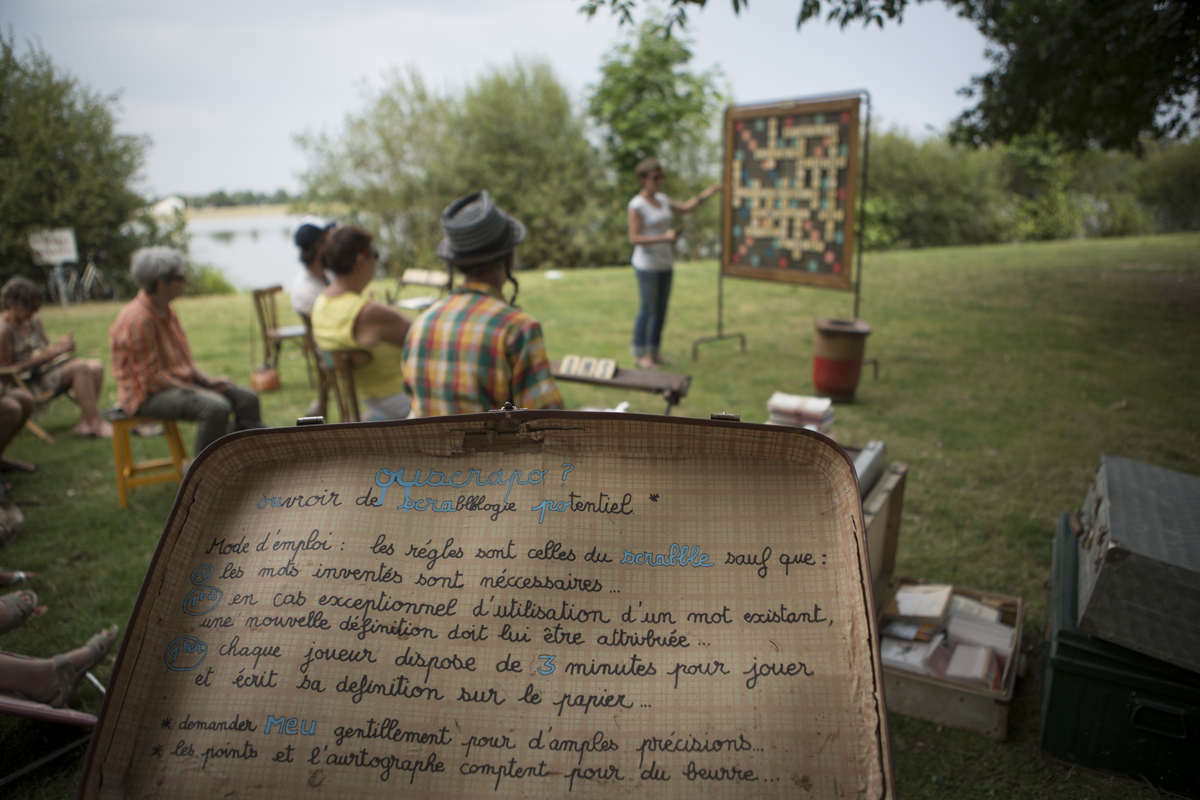 ouscrapo ?
ouvroir de scrabblologie potentiel. *
Mode d'emploi : les régles sont celles du scrabble sauf que :
les mots inventés sont néccessaires ...
en cas exceptionnel d'utilisation d'un mot existant,
une nouvelle définition doit lui être attribuée ...
chaque joueur dispose de 3 minutes pour jouer
et écrit sa definition sur le papier ...
* demander Meu gentillement pour d'amples précisions...
* les points et l'aurtographe comptent pour du beurre ...